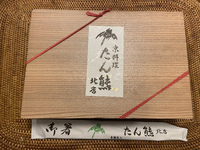 京料理
たん熊
北店
御箸
たん熊
北店